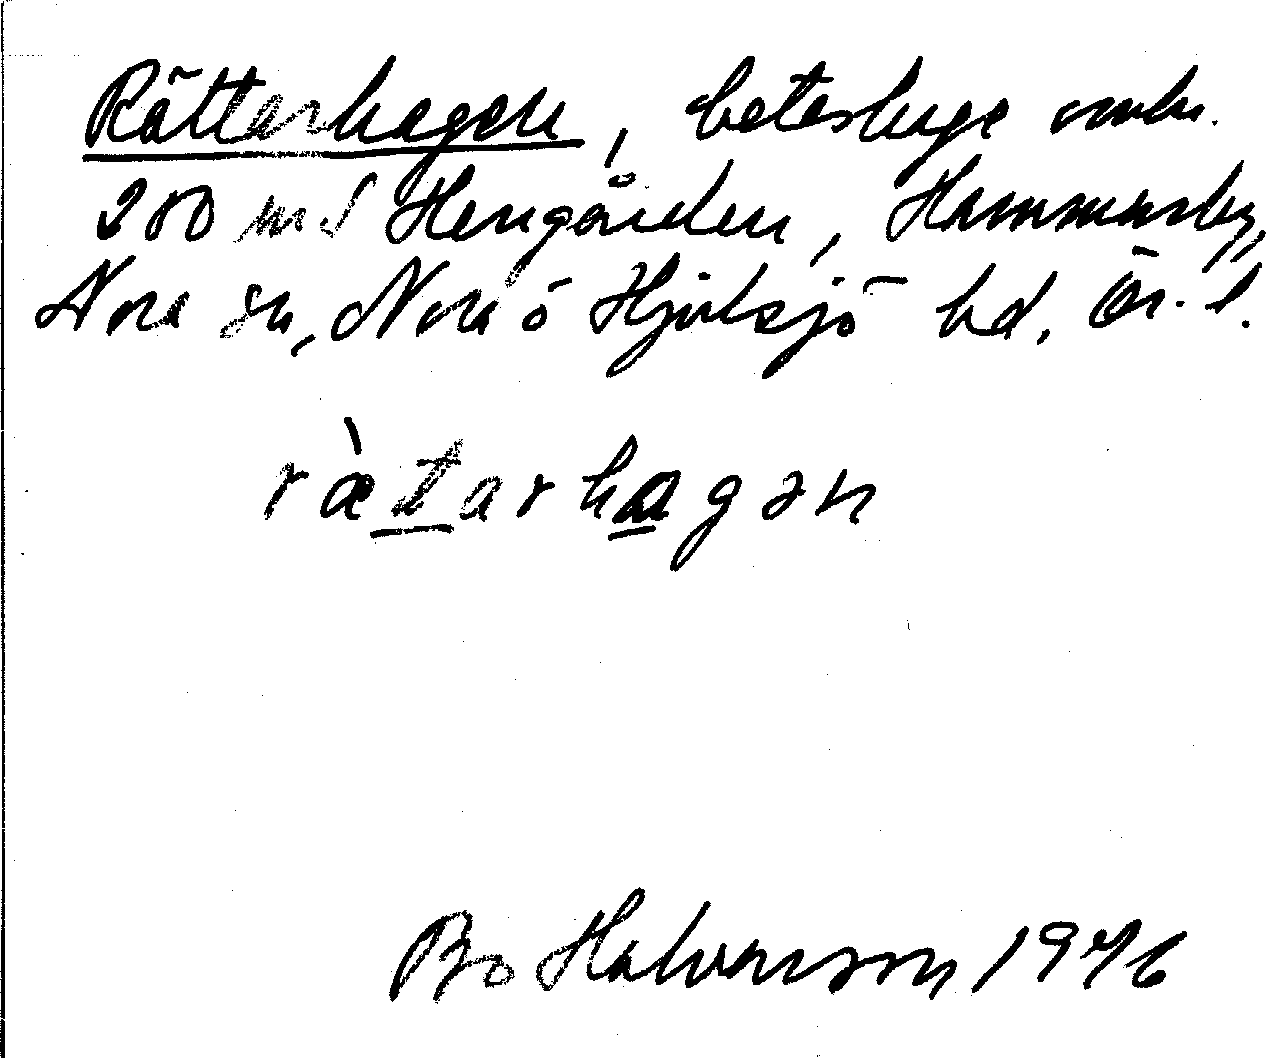 Rättarhagen, beteshage omkr.
200 m S Herrgården, Hammarsby,
Nora sn, Nora ö Hjulsjö hd. Ör. l.
ræ̀tarhagən
Bo Halvarson 1946